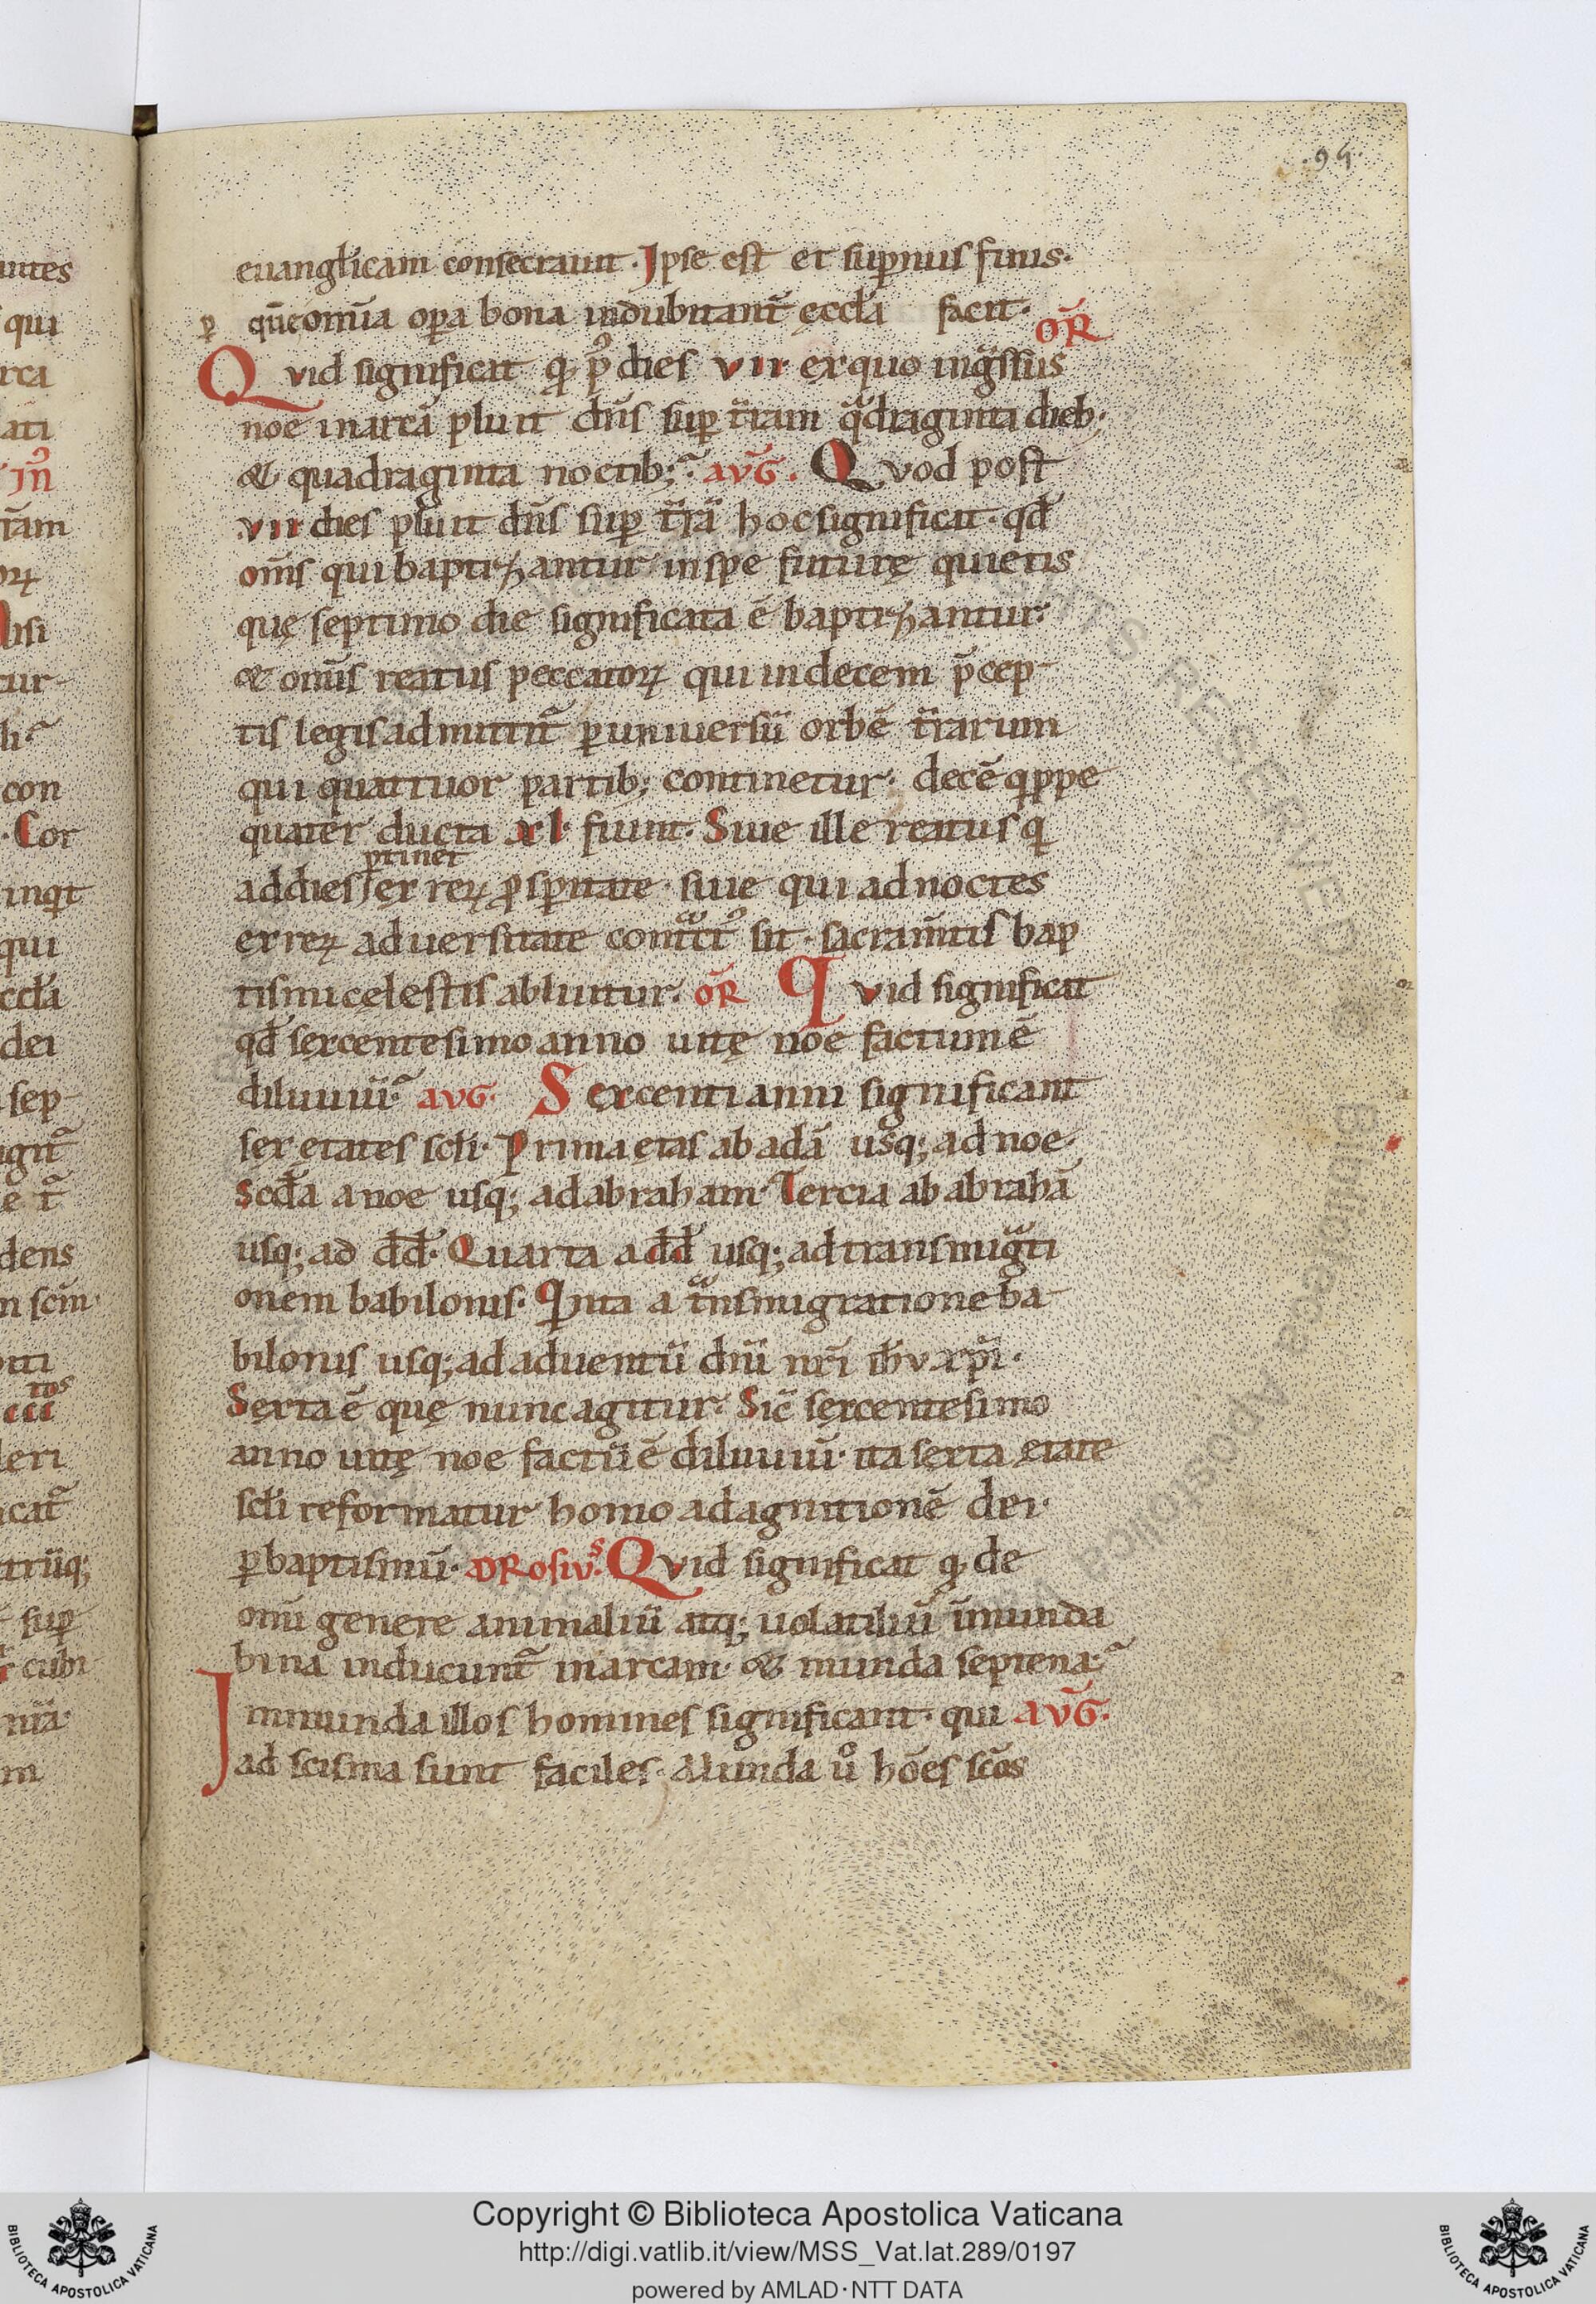 .95.
euangl̄icam consecrauit. Ipse est et sup̄nus finis.
p̱ quē om̄ia opa bona indubitant̄ ęccl̄a facit. OR̄
Qvid significat q̱ p᷒ dies vii. ex quo ing̈ssus
noe in arcā pluit dn̄s sup t̄ram q̈draginta dieb;
& quadraginta noctib;. AVḠ. Qvod post
.vii dies pluit dn̄s sup t̄rā hoc significat. qđ
om̄s qui baptizantur in spe futurę quietis
quę septimo die significata ē baptizantur.
& om̄is reatus peccatoꝝ qui in decem p̄cep-
tis legis admittit̄ ꝑ uniuersū orbē t̄rarum
qui quattuor partib; continetur. decē qppe
quater ducta xl. fiunt. Siue ille reatus q
ad dies ptinet ex reꝝ ꝓspitate. siue qui ad noctes
ex reꝝ aduersitate cont̄ct᷒ sit. sacram̄tis bap
tismi cęlestis abluitur. OR̄ Qvid significat
qđ sexcentesimo anno uitę noe factum ē
diluuiū. AVG. Sexcenti anni significant
sex ętates scl̄i. Prima ętas ab adā usq; ad noe.
Scđa a noe usq; ad abraham. Tercia ab abrahā
usq; ad dd̄. Quarta a dd̄ usq; ad transmig̈ti
onem babilonis. Qinta a t̄nsmigratione ba-
bilonis usq; ad aduentū dn̄i nr̄i ih̄v xp̄i.
Sexta ē quę nunc agitur. Sic̄ sexcentesimo
anno uitę noe factū ē diluuiū. ita sexta ętate
scl̄i reformatur homo ad agnitionē dei.
ꝑ baptismū. OROSIVS. Qvid significat q̱ de
om̄i genere animaliū atq; uolatiliū īmunda
bina inducunt̄ in arcam. & munda septena.
Inmunda illos homines significant. qui AVḠ.
ad scisma sunt faciles. Munda ů hōes sc̄os
Copyright © Biblioteca Apostolica Vaticana
http://digi.vatlib.it/view/MSS_Vat.lat.289/0197
powered by AMLAD·NTT DATA